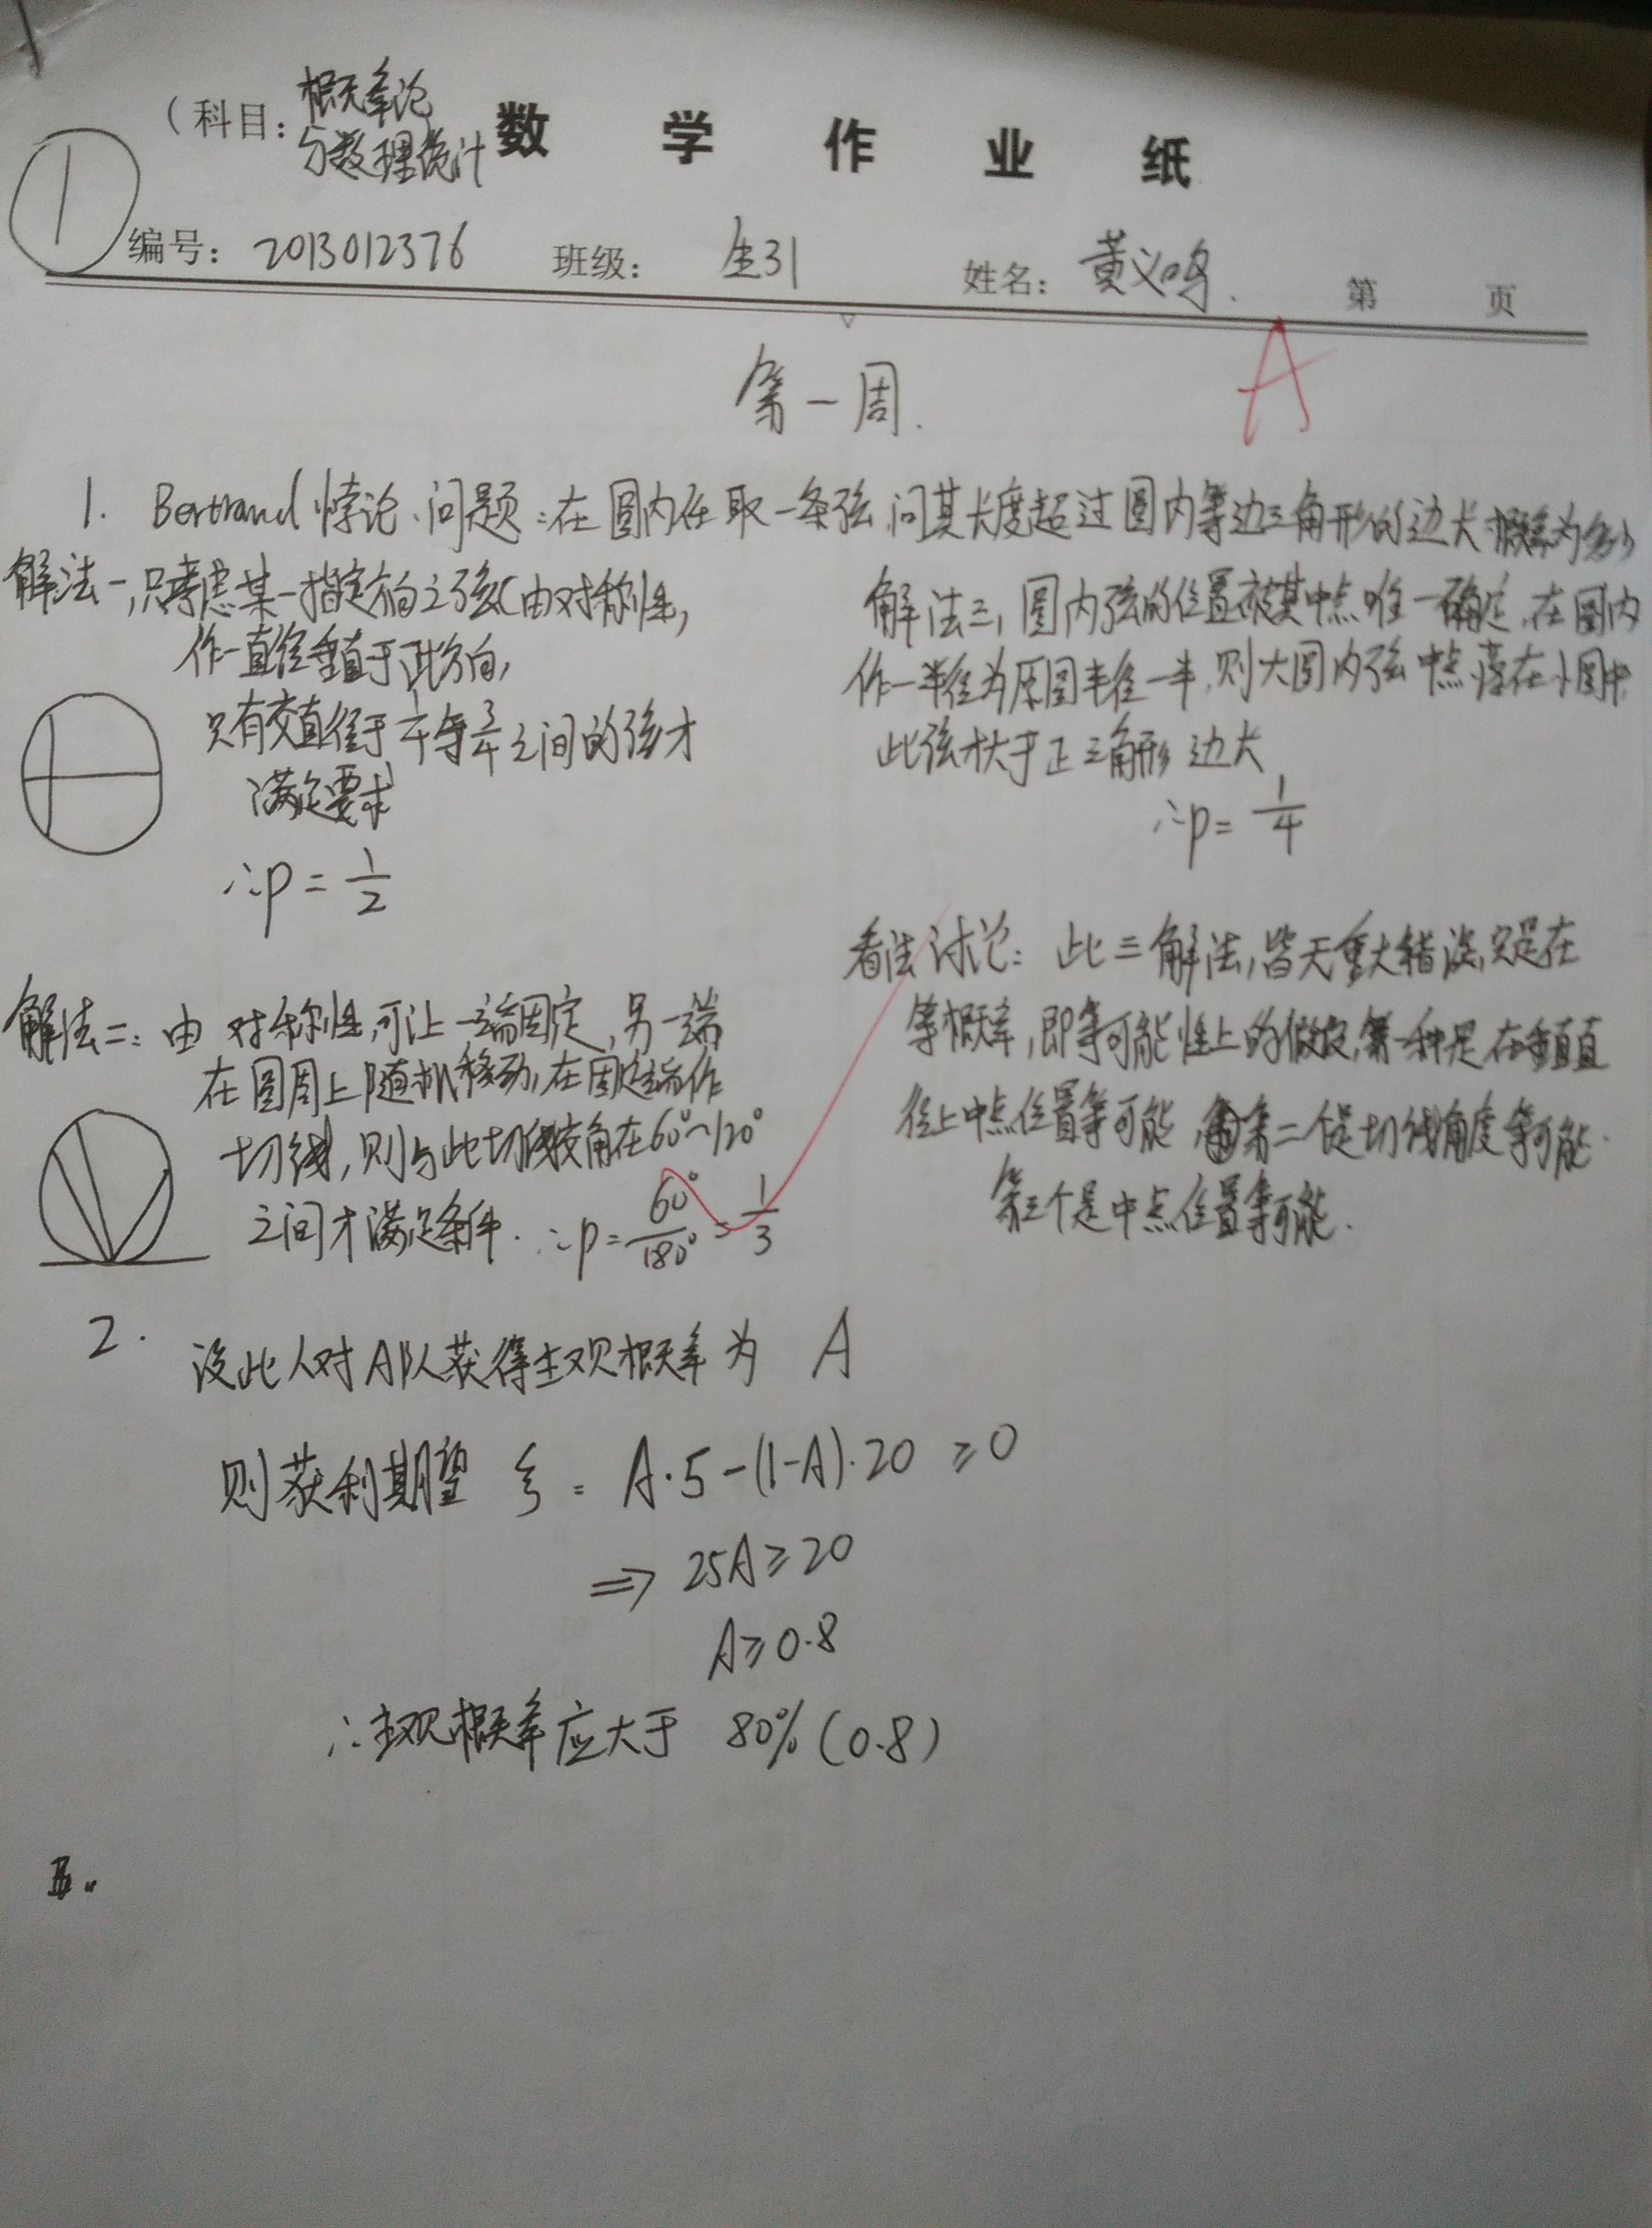 (科目: 概率论
与数理统计
数学作业纸
①
编号: 2013012376 班级: 生31 姓名: 黄义鸣. 第 页
A
第一周.
1. Bertrand悖论.问题:在圆内任取一条弦,问其长度超过圆内等边三角形的边长概率为多少
解法一,只考虑某一指定方向之弦(由对称性,
作一直径垂直于此方向,
只有交直径于1/4与3/4之间的弦才
满足要求
∴p=1/2
解法二:由对称性,可让一端固定,另一端
在圆周上随机移动,在固定端作
切线,则与此切线交角在60°~120°
之间才满足条件.∴p=60°/180°=1/3
解法三,圆内弦的位置被其中点唯一确定.在圆内
作一半径为原圆半径一半,则大圆内弦中点落在小圆中,
此弦才大于正三角形边长
∴p=1/4
看法讨论:此三解法,皆无重大错误,只是在
等概率,即等可能性上的假定,第一种是在垂直直
径上中点位置等可能,第二个是切线角度等可能.
第三个是中点位置等可能.
2.
设此人对A队获得主观概率为 A
则获利期望 ξ=A·5-(1-A)·20≥0
⇒25A≥20
A≥0.8
∴主观概率应大于 80%(0.8)